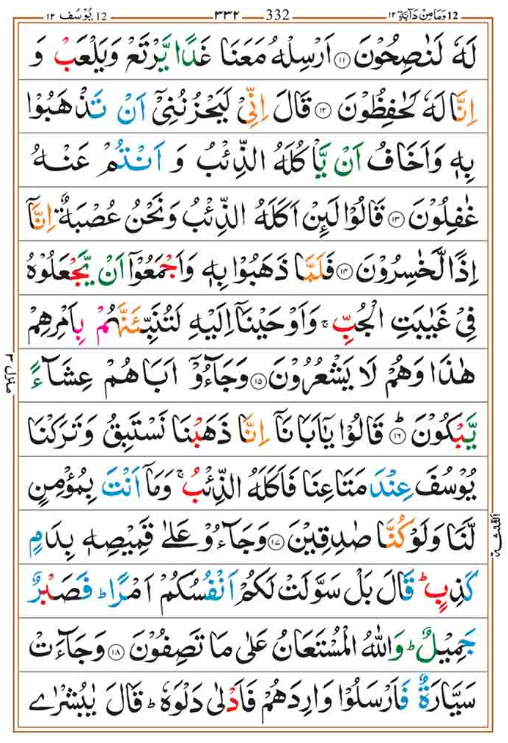 12 يُوْسُف ١٢ ٣٣٢ 332 12 وَمَا مِنْ دَآبَّةٍ ١٢
لَهٗ لَنٰصِحُوْنَ ۝١١ اَرْسِلْهُ مَعَنَا غَدًا يَّرْتَعْ وَيَلْعَبْ وَ
اِنَّا لَهٗ لَحٰفِظُوْنَ ۝١٢ قَالَ اِنِّيْ لَيَحْزُنُنِيْٓ اَنْ تَذْهَبُوْا
بِهٖ وَاَخَافُ اَنْ يَّاْكُلَهُ الذِّئْبُ وَ اَنْتُمْ عَنْهُ
غٰفِلُوْنَ ۝١٣ قَالُوْا لَىِٕنْ اَكَلَهُ الذِّئْبُ وَنَحْنُ عُصْبَةٌ اِنَّآ
اِذًا لَّخٰسِرُوْنَ ۝١٤ فَلَمَّا ذَهَبُوْا بِهٖ وَاَجْمَعُوْٓا اَنْ يَّجْعَلُوْهُ
فِيْ غَيٰبَتِ الْجُبِّ ۚ وَاَوْحَيْنَآ اِلَيْهِ لَتُنَبِّئَنَّهُمْ بِاَمْرِهِمْ
هٰذَا وَهُمْ لَا يَشْعُرُوْنَ ۝١٥ وَجَآءُوْٓ اَبَاهُمْ عِشَآءً
يَّبْكُوْنَ ؕ ۝١٦ قَالُوْا يٰٓاَبَانَآ اِنَّا ذَهَبْنَا نَسْتَبِقُ وَتَرَكْنَا
يُوْسُفَ عِنْدَ مَتَاعِنَا فَاَكَلَهُ الذِّئْبُ ۚ وَمَآ اَنْتَ بِمُؤْمِنٍ
لَّنَا وَلَوْ كُنَّا صٰدِقِيْنَ ۝١٧ وَجَآءُوْ عَلٰى قَمِيْصِهٖ بِدَمٍ
كَذِبٍ ؕ قَالَ بَلْ سَوَّلَتْ لَكُمْ اَنْفُسُكُمْ اَمْرًا ؕ فَصَبْرٌ
جَمِيْلٌ ؕ وَاللّٰهُ الْمُسْتَعَانُ عَلٰى مَا تَصِفُوْنَ ۝١٨ وَجَآءَتْ
سَيَّارَةٌ فَاَرْسَلُوْا وَارِدَهُمْ فَاَدْلٰى دَلْوَهٗ ؕ قَالَ يٰبُشْرٰى
منزل ٣
الثلثة